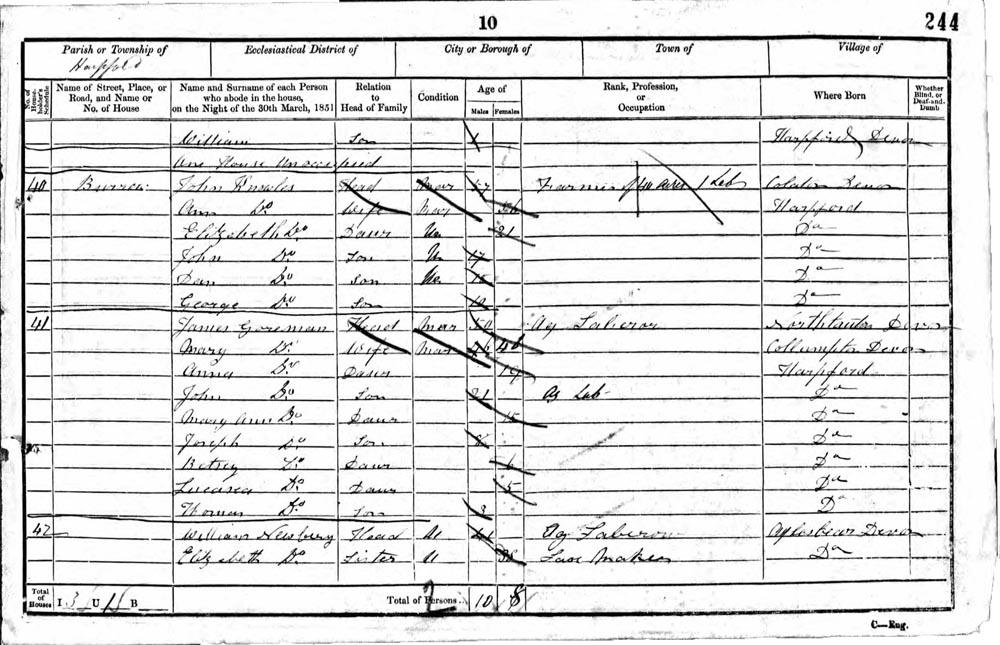 10
244
Parish or Township of Ecclesiastical District of City or Borough of Town of Village of
Harpford
No. of House-holder's Schedule Name of Street, Place, or Road, and Name or No. of House Name and Surname of each Person who abode in the house, on the Night of the 30th March, 1851 Relation to Head of Family Condition Age of Males Females Rank, Profession, or Occupation Where Born Whether Blind, or Deaf-and-Dumb
William Son 1 Harpford Devon
One House Unoccupied
40 Burrow John Knowles Head Mar 57 Farmer of 40 acres 1 Lab Colaton Devon
Ann Do Wife Mar 56 Harpford
Elizabeth Do Daur Un 21 Do
John Do Son Un 17 Do
Dan Do Son Un 15 Do
George Do Son Do
41 James Goreman Head Mar 50 Ag Laberor Northtauton Devon
Mary Do Wife Mar 46 Collumpton Devon
Anna Do Daur 19 Harpford
John Do Son 21 Ag Lab Do
Mary Ann Do Daur 15 Do
Joseph Do Son 8 Do
Betsey Do Daur 6 Do
Do Daur 5 Do
Thomas Do Son 3 D
42 William Newbery Head U 41 Ag Laberor Aylesbear Devon
Elizabeth Do Sister U 38 Lace Maker Do
Total of Houses I 3 U 1 B Total of Persons... 2 10 8
C—Eng.